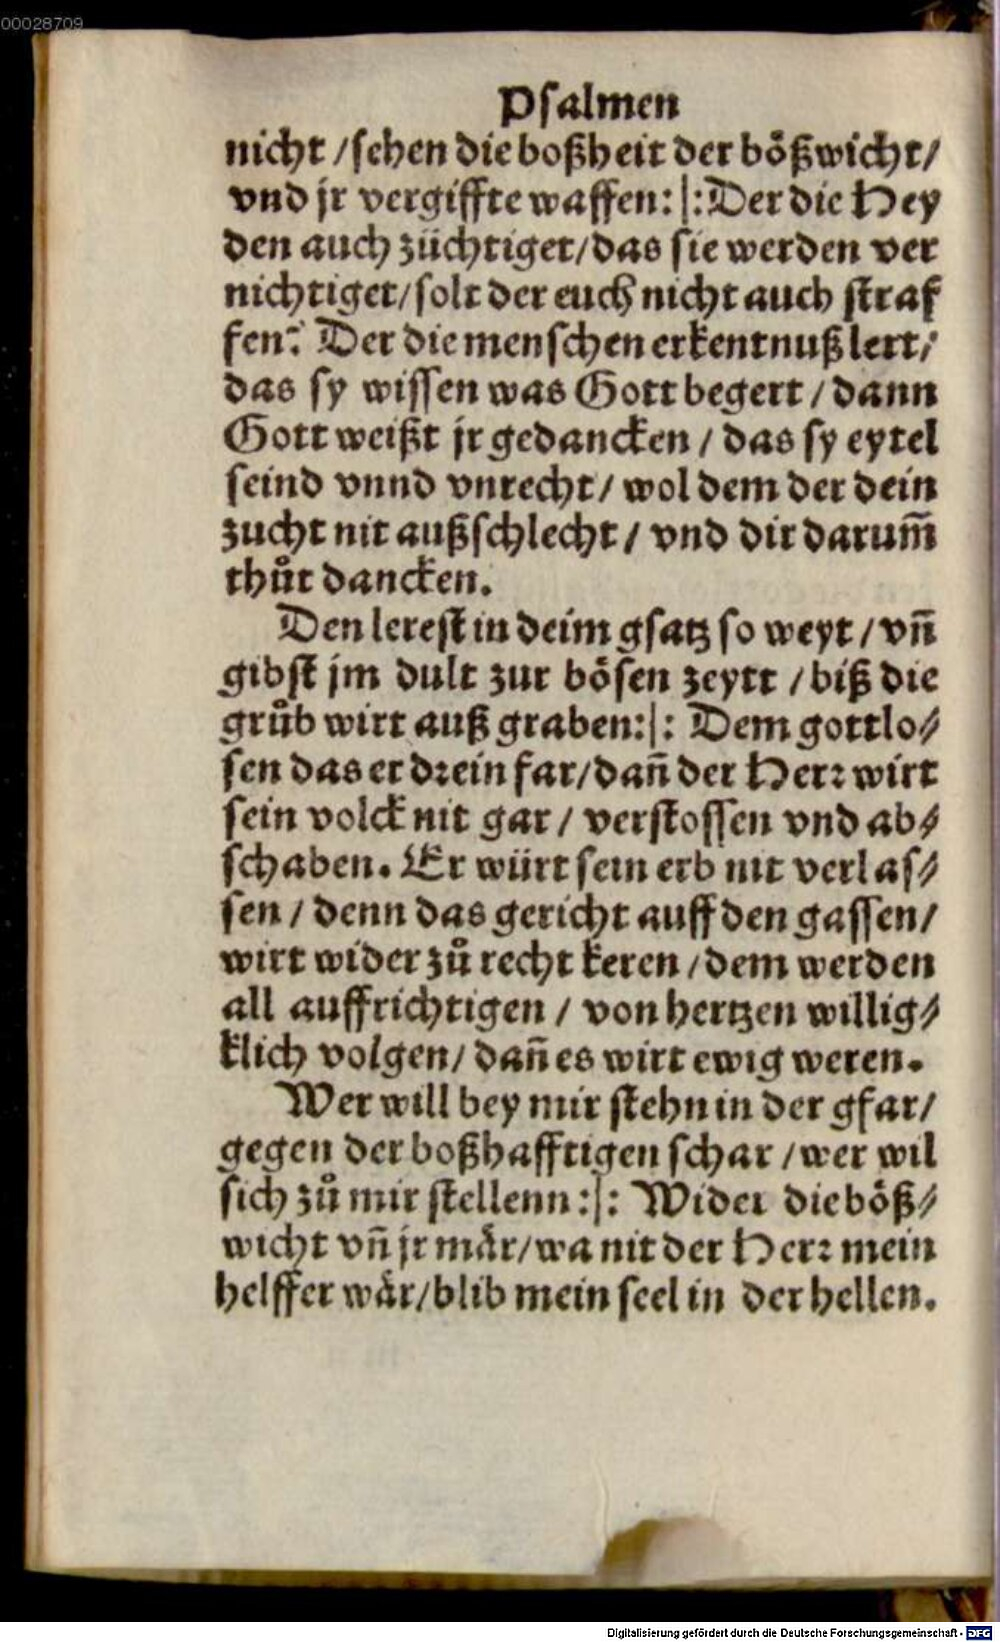 00028709
Psalmen
nicht / sehen die boßheit der bößwicht /
vnd jr vergiffte waffen: |: Der die Hey
den auch züchtiget / das sie werden ver
nichtiget / solt der euch nicht auch straf
fen? Der die menschen erkentnuß lert /
das sy wissen was Gott begert / dann
Gott weißt jr gedancken / das sy eytel
seind vnnd vnrecht / wol dem der dein
zucht nit außschlecht / vnd dir darum̃
thůt dancken.
Den lerest in deim gsatz so weyt / vñ
gibst jm dult zur bösen zeytt / biß die
grůb wirt auß graben: |: Dem gottlo⸗
sen das er dꝛein far / dañ der Herꝛ wirt
sein volck nit gar / verstossen vnd ab⸗
schaben. Er würt sein erb nit verlas⸗
sen / denn das gericht auff den gassen /
wirt wider zů recht keren / dem werden
all auffrichtigen / von hertzen willig⸗
klich volgen / dañ es wirt ewig weren.
Wer will bey mir stehn in der gfar /
gegen der boßhafftigen schar / wer wil
sich zů mir stellenn: |: Wider die böß⸗
wicht vñ jr mär / wa nit der Herꝛ mein
helffer wär / blib mein seel in der hellen.
Digitalisierung gefördert durch die Deutsche Forschungsgemeinschaft - DFG